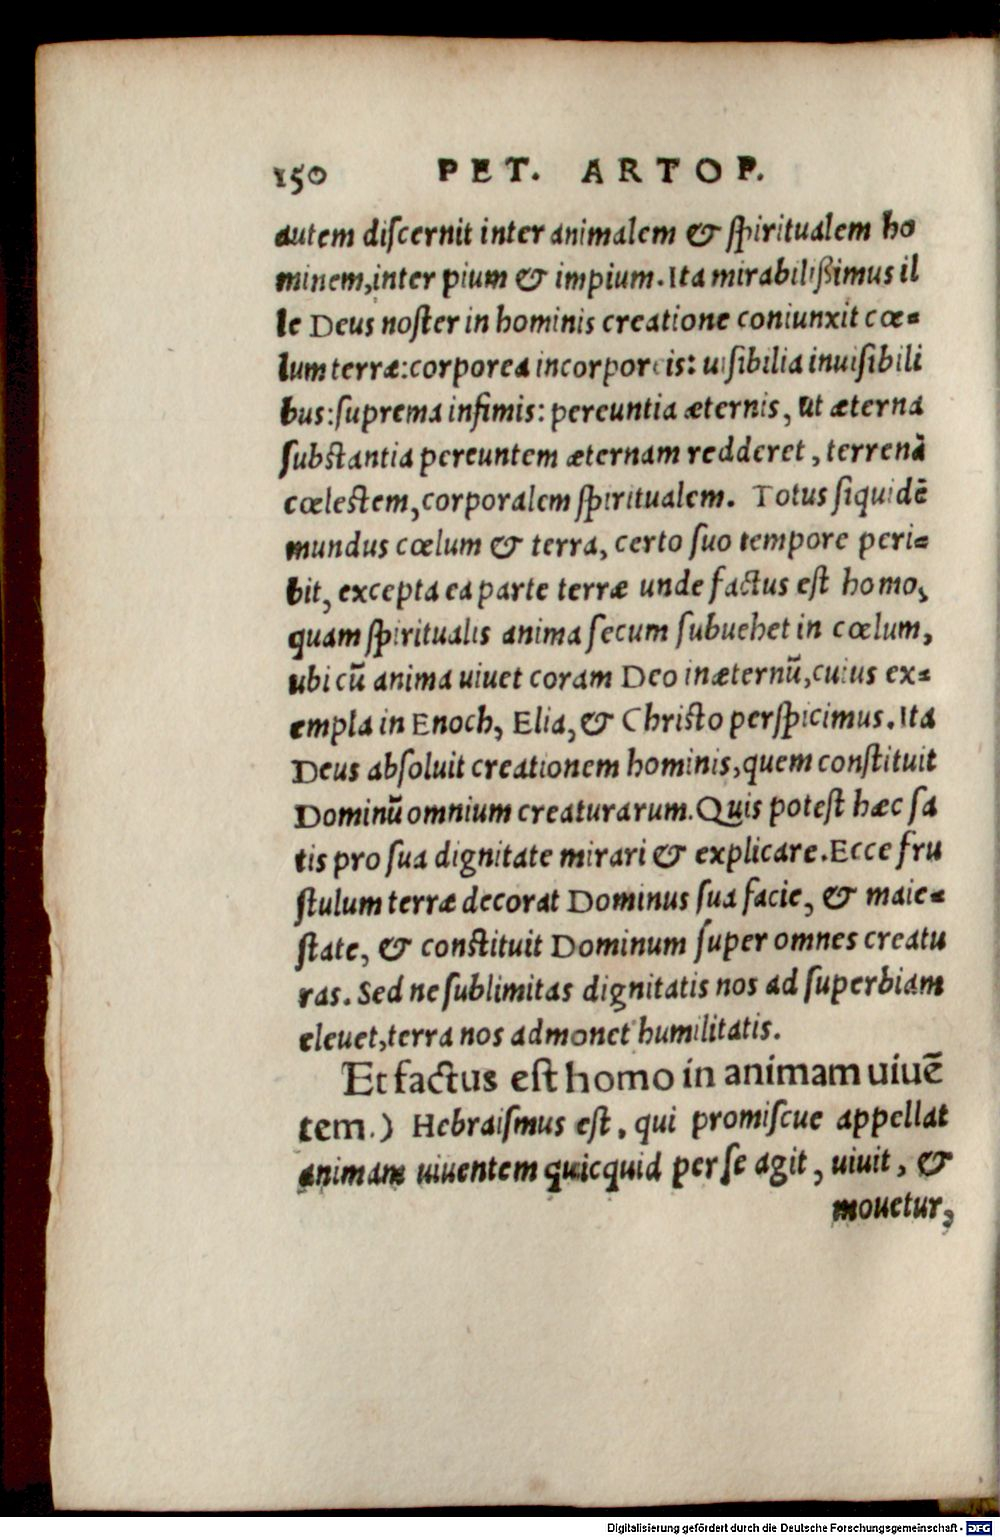 150 PET. ARTOP.
autem diſcernit inter animalem & ſpiritualem ho
minem,inter pium & impium. Ita mirabilißimus il
le Deus noſter in hominis creatione coniunxit cœ=
lum terræ:corporea incorporeis: uiſibilia inuiſibili
bus:ſuprema infimis: pereuntia æternis, ut æterna
ſubſtantia pereuntem æternam redderet, terrenã
cœleſtem,corporalem ſpiritualem. Totus ſiquidẽ
mundus cœlum & terra, certo ſuo tempore peri=
bit, excepta ea parte terræ unde factus eſt homo,
quam ſpiritualis anima ſecum ſubuehet in cœlum,
ubi cũ anima uiuet coram Deo inæternũ,cuius ex=
empla in Enoch, Elia, & Chriſto perſpicimus. Ita
Deus abſoluit creationem hominis,quem conſtituit
Dominũ omnium creaturarum. Quis poteſt hæc ſa
tis pro ſua dignitate mirari & explicare. Ecce fru
ſtulum terræ decorat Dominus ſua facie, & maie=
ſtate, & conſtituit Dominum ſuper omnes creatu
ras. Sed ne ſublimitas dignitatis nos ad ſuperbiam
eleuet,terra nos admonet humilitatis.
Et factus eſt homo in animam uiuẽ
tem.) Hebraiſmus eſt, qui promiſcue appellat
animam uiuentem quicquid per ſe agit, uiuit, &
mouetur,
Digitalisierung gefördert durch die Deutsche Forschungsgemeinschaft - DFG